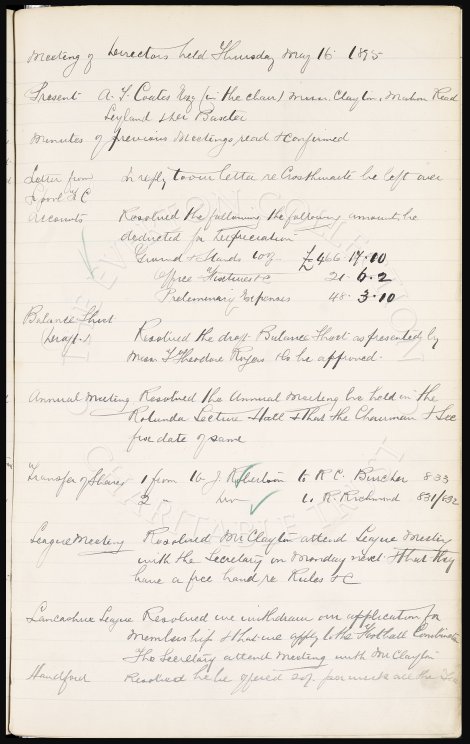 Meeting of Directors held Thursday May 16 1895
Present A. T. Coates Esq (in the chair) Messrs. Clayton, Mahon Read
Leyland & Dr Baxter
Minutes of previous Meetings read & confirmed
Letter from In reply to our letter re Crosthwaite be left over
& C
Accounts Resolved the following the following amounts be
deducted for Depreciation
Ground & Stands 10% £466.17.10
Office Fixtures &c 21.6.2
Preliminary Expenses 48.3.10
Balance Sheet
(draft) Resolved the draft Balance Sheet as presented by
Messrs T Theodore Rogers & Co be approved.
Annual Meeting Resolved the Annual Meeting be held in the
Rotunda Lecture Hall & that the Chairman & Sec
fix date of same
Transfer of Shares 1 from W. J. Robertson to R C. Butcher 833
2 - to R. Richmond 831/832
League Meeting Resolved Mr Clayton attend League Meeting
with the Secretary on Monday next & that they
have a free hand re Rules & C
Lancashire League Resolved we withdraw our application for
Membership & that we apply to the Football Combination
The Secretary attend Meeting with Mr Clayton
Handford Resolved he be offered per week all the
THE EVERTON COLLECTION
CHARITABLE TRUST